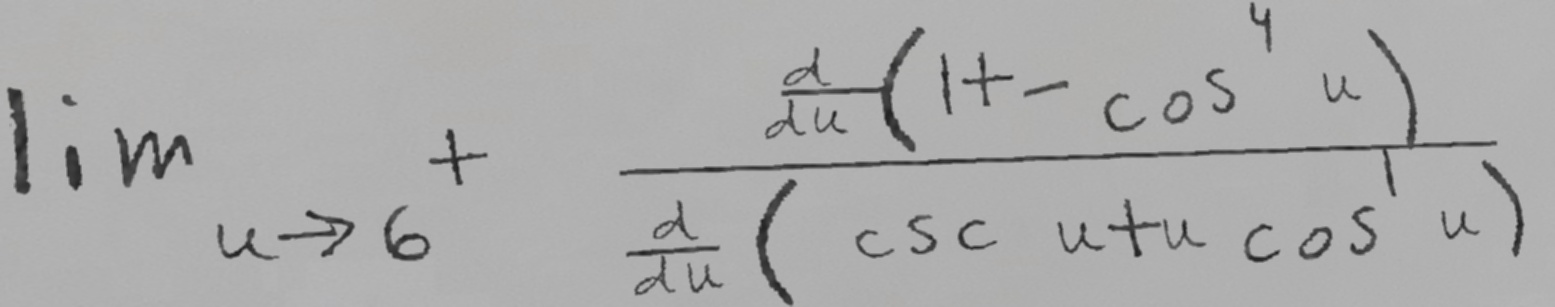 \lim_{u \to 6^+} \frac{\frac{d}{du}(1 + - \cos^4 u)}{\frac{d}{du}(\csc u + u \cos^1 u)}